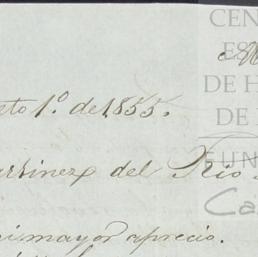 CEN
ES
DE H
DE
to 1º de 1855.
artinez del Rio
FUN
Ca
mi mayor aprecio.